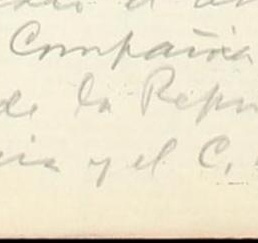 Compañia
de la Repu
cia y el C.